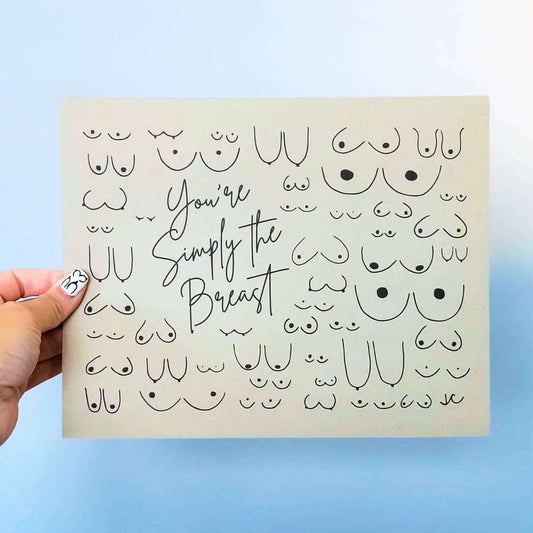 You're
Simply the
Breast
JC